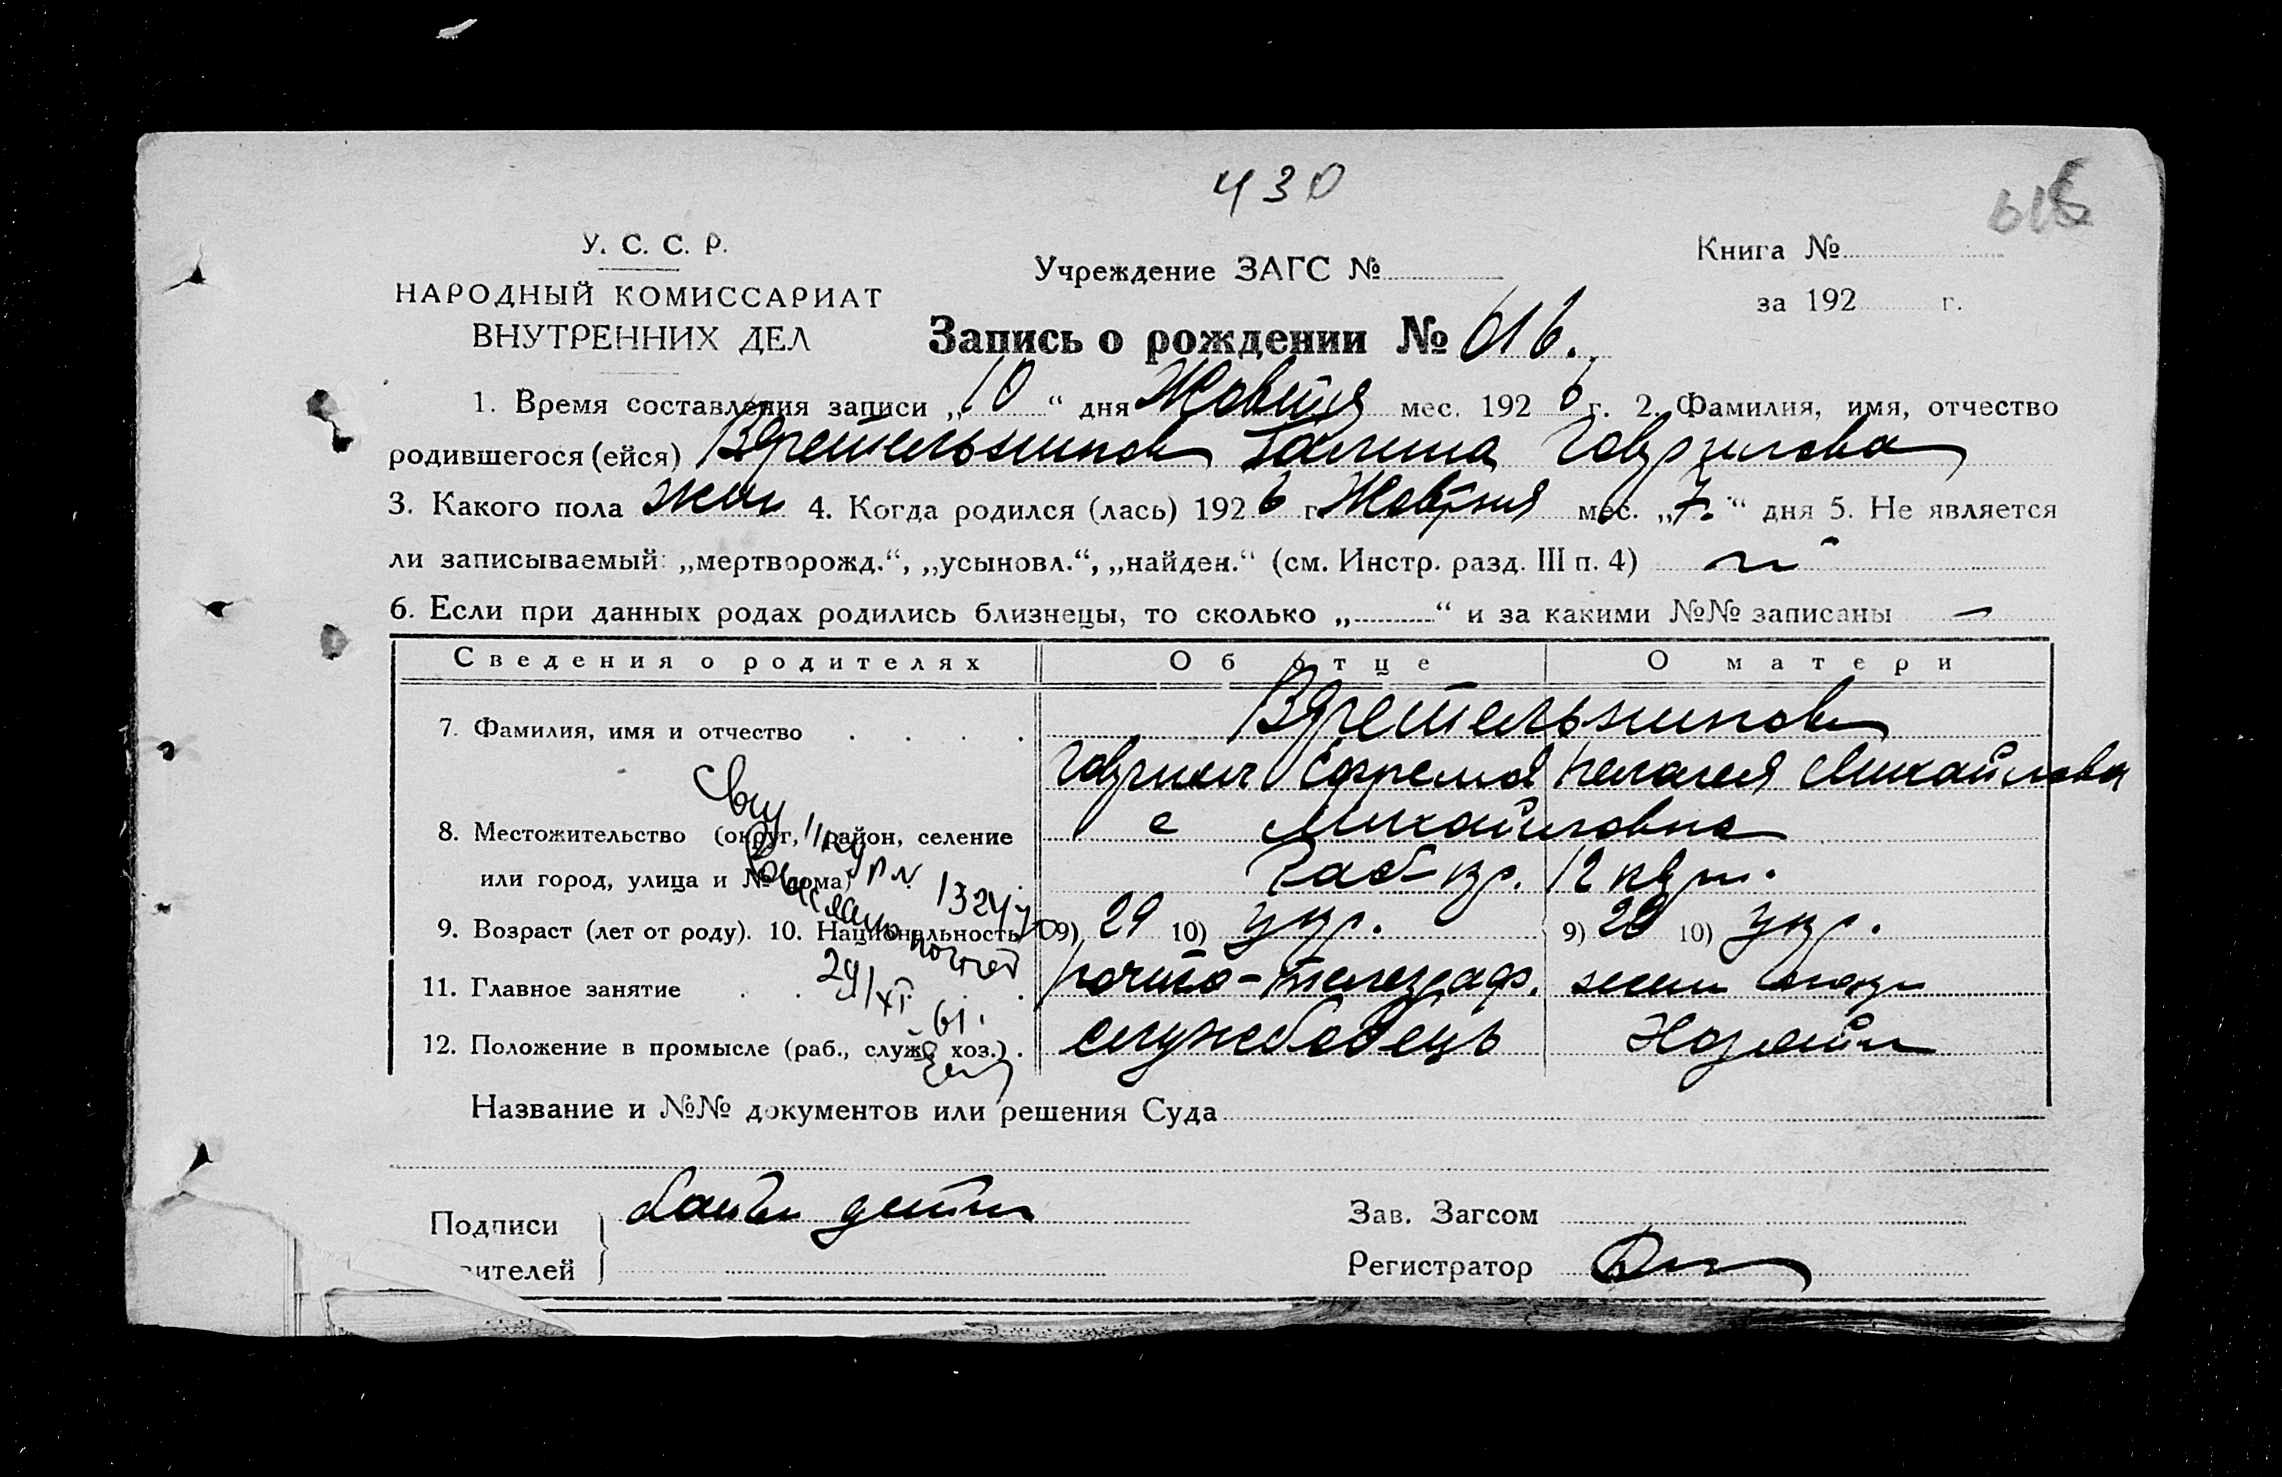 430
616
У. С. С. Р.
НАРОДНЫЙ КОМИССАРИАТ
ВНУТРЕННИХ ДЕЛ
Учреждение ЗАГС №
Книга №
за 192 г.
Запись о рождении № 616.
1. Время составления записи „10“ дня Жовтня мес. 1926 г. 2. Фамилия, имя, отчество
родившегося (ейся) Галина Гаврилова
3. Какого пола жін 4. Когда родился (лась) 1926 г. Жовтня мес. „7.“ дня 5. Не является
ли записываемый: „мертворожд.“, „усыновл.“, „найден.“ (см. Инстр. разд. III п. 4) ні
6. Если при данных родах родились близнецы, то сколько „ “ и за какими №№ записаны —
Сведения о родителях Об отце О матери
7. Фамилия, имя и отчество
Пелагея Михайлова
8. Местожительство (округ, район, селение с Михайловка
или город, улица и № дома) 12
9. Возраст (лет от роду). 10. Национальность 9) 29 10) укр. 9) 10) укр.
11. Главное занятие почто-телеграф.
12. Положение в промысле (раб., служ., хоз.) службовець
29/XI 61.
Название и №№ документов или решения Суда
Подписи
вителей
Зав. Загсом
Регистратор